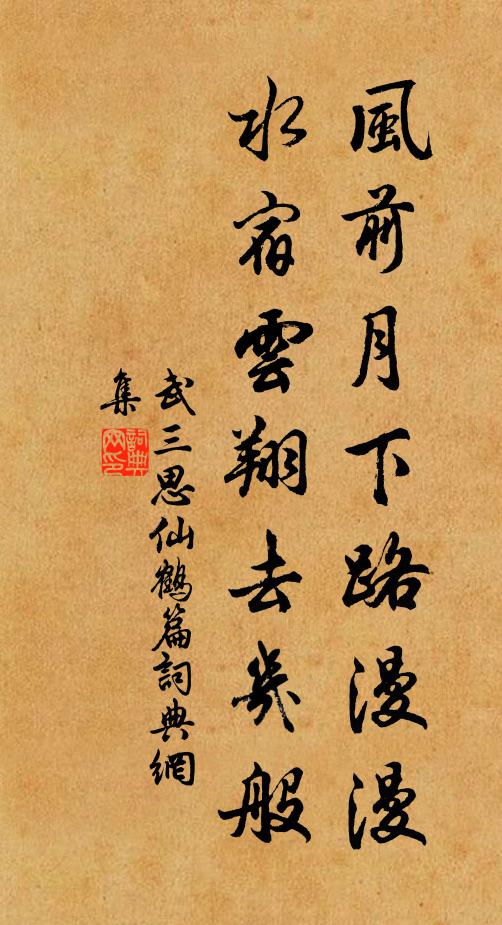 風前月下路漫漫
水宿雲翔去幾般
武三思仙鶴篇詞典網
集
詞典網印